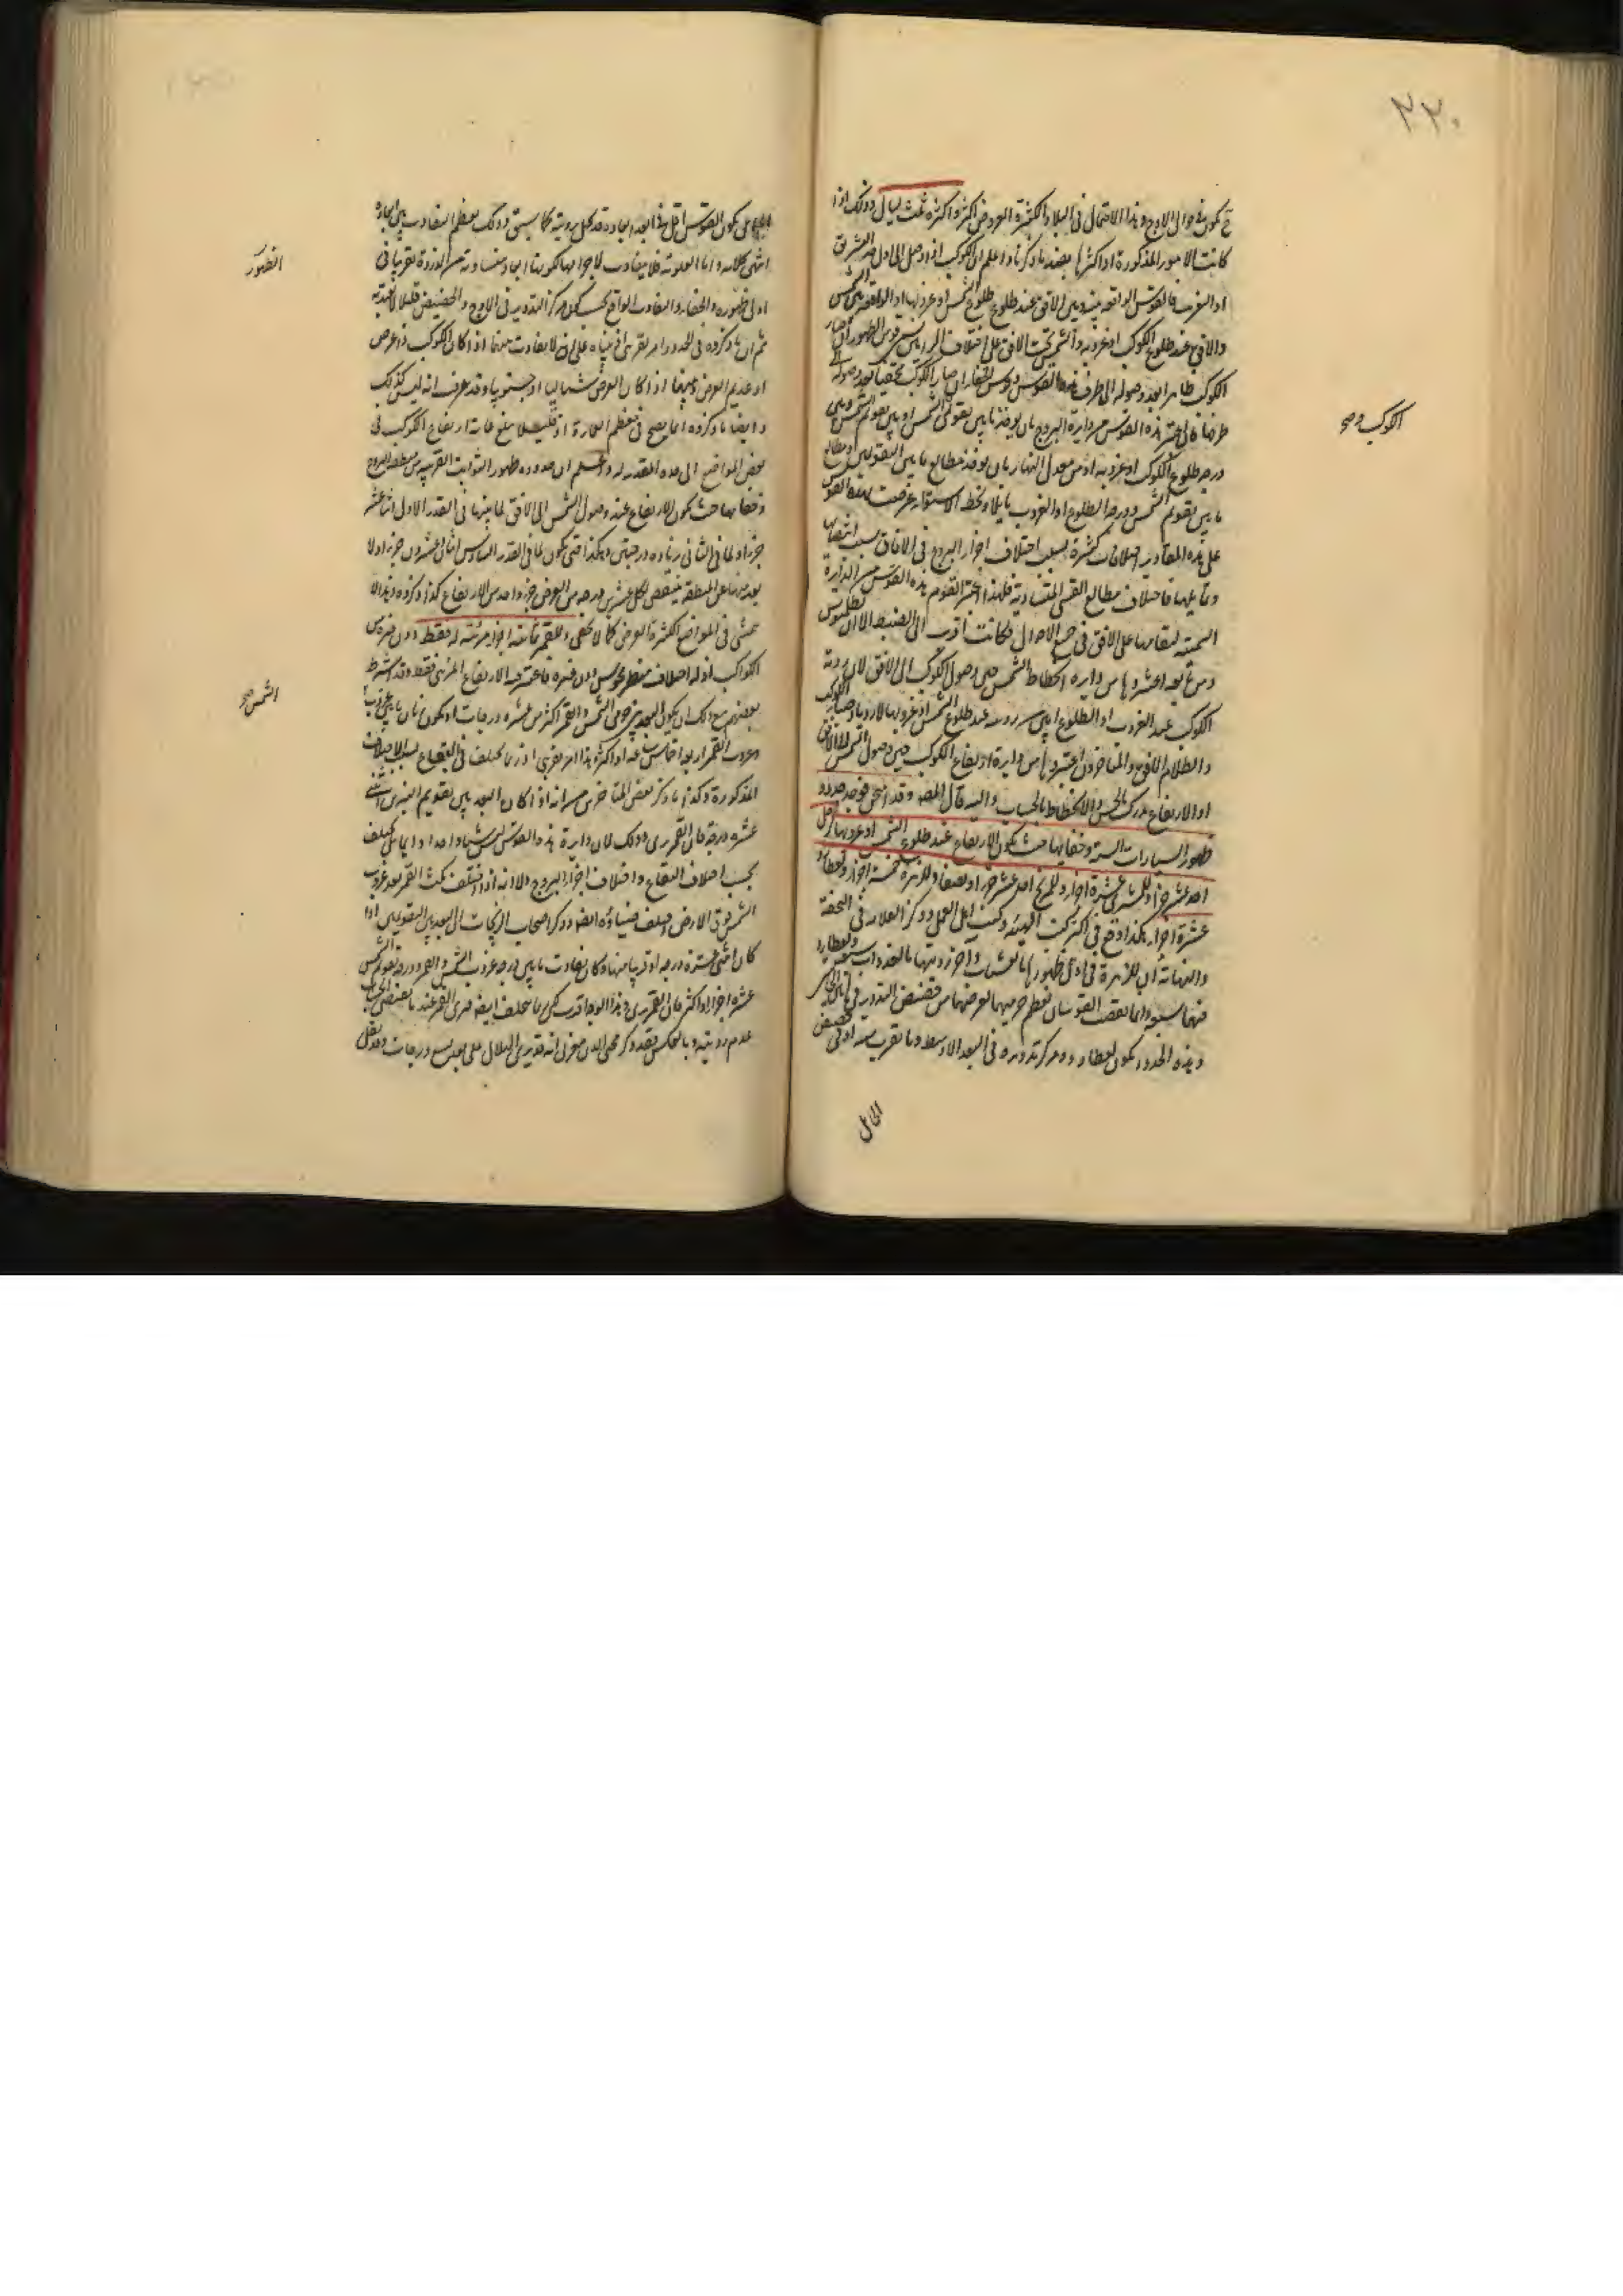 ٢٢٠
ح يكون فى حوالى الاوج وهذا الاحتمال فى البلاد الكثيرة العروض اكثر واكثره ثلث ليال وذلك اذا
كانت الامور المذكورة او اكثرها بضد ما ذكرنا واعلم ان الكوكب اذا وصل الى اول المشرق
او المغرب فالقوس الواقعة بينه وبين الافق عند طلوع الشمس او غروبها او الواقعة بين الشمس
والافق عند طلوع الكوكب او غروبه والشمس تحت الافق على اختلاف الرايين قوس الظهور ان صار
الكوكب ظاهرا بعد وصوله الى طرف هذه القوس وقوس الخفاء ان صار الكوكب مختفيا بعد وصوله
طرفها فان اعتبر هذه القوس من دايرة البروج بان يوخذ ما بين تقويمى الشمس او بين تقويم الشمس وبين
درجة طلوع الكوكب او غروبه او من معدل النهار بان يوخذ مطالع ما بين التقويمين او مطالع
ما بين تقويم الشمس ودرجة الطلوع او الغروب بالبلد او بخط الاستواء عرضت لهذه القوس
على هذه التقادير اختلافات كثيرة بسبب اختلاف اجزاء البروج فى الافاق بسبب انتصابها
وتمايلها فاختلاف مطالع القسى المتساوية فلهذا اعتبر القوم هذه القوس من الدايرة
السمتية لمقامها على الافق فى جميع الاحوال فكانت اقرب الى الضبط الا ان بطلميوس
ومن تبعه اعتبروها من دايرة انحطاط الشمس حين وصول الكوكب الى الافق لان رؤية
الكوكب عند الغروب او الطلوع
والظلام الافق والمتاخرون اعتبروها من دايرة ارتفاع الكوكب حين وصول الشمس الى الافق
اذ الارتفاع يدرك بالحس والانحطاط بالحساب واليه مال المصه وقد امتحن فوجد حدود
ظهور السيارات الستة وخفايها حيث يكون الارتفاع عند طلوع الشمس او غروبها لزحل
احد عشر جزءا وللمشترى عشرة اجزاء وللمريخ احد عشر جزءا ونصفا وللزهرة خمسة اجزاء ولعطارد
عشرة اجزاء هكذا وقع فى اكثر كتب الهيئة وكتب اهل العمل وذكر العلامة فى التحفة
والنهاية ان للزهرة فى اول ظهورها بالعشيات وآخر رؤيتها بالغدوات سبعة ولعطارد
فيهما سبعة وانما نقصت القوسان لعظم جرميهما لقربهما من حضيض التدوير فى هاتين الحالتين
وهذه الحدود يكون لعطارد ومركز تدويره فى البعد الاوسط وما يقرب منه او فى حضيض
الحامل
الكوكب وصح
على يكون القوس اقل هذا البعد ابعاده قد كحل برؤيته كما سبق وذلك لعظم التفاوت بين ابعاده
انتهى كلامه واما العلوية فلا يتفاوت لاجرامها لكونها ابعاد متساوية من الذروة تقريبا فى
اول ظهوره والخفاء والتفاوت الواقع بحسب كون مركز التدوير فى الاوج والحضيض قليلا لا يعتد به
ثم ان ما ذكروه فى الحدود امر تقريبى اذ مبناه على ان لا يتفاوت حدها اذا كان الكوكب ذا عرض
او عديم العرض وايضا اذا كان العرض شماليا او جنوبيا وقد عرف انه ليس كذلك
وايضا ما ذكروه انما يصح فى معظم العمارة اذ قليلا ما يبلغ غاية ارتفاع الكوكب فى
بعض المواضع الى هذه المقدر له واعلم ان حدوده ظهور الثوابت القريبة من منطقة البروج
وخفايها حيث يكون الارتفاع عند وصول الشمس الى الافق لما بينها فى القدر الاول اثنا عشر
جزءا ولما فى الثانى زيادة درجتين وهكذا حتى يكون لما فى القدر السادس اثنان وعشرون جزءا ولا
بعد منها عن المنطقة ينقص لكل عشرين درجة من العرض جزء واحد من الارتفاع كذا ذكروه وهذا لا
يتمشى فى المواضع الكثيرة العرض كما لا يخفى وللقمر ثمانية اجزاء مرئية له فقط دون غيره من
الكواكب اذ له اختلاف منظر محسوس دون غيره فاعتبر فيه الارتفاع المرئى فقط وقد اشترط
بعضهم مع ذلك ان يكون البعد بين تقويمى الشمس والقمر اكثر من عشرة درجات او يكون زمان ما بين غروبها
وغروب القمر اربعة اخماس ساعة او اكثر هذا امر تقريبى اذ ربما يختلف فى البقاع بسبب الاختلافات
المذكورة وكذا ما ذكر بعض المتاخرين من انه اذا كان البعد بين تقويم النيرين اثنتى
عشرة درجة فان القمر يرى وذلك لان دايرة هذه القوس ليس شيئا واحدا دايما بل يختلف
بحسب اختلاف البقاع واختلاف اجزاء البروج والا انه اذا اختلف مكث القمر بعد غروب
الشمس فوق الارض اختلف ضياؤه ايضا وذكر اصحاب الزيجات ان البعد بين التقويمين اذا
كان اثنى عشرة درجة او قريبا منها وكان تفاوت ما بين درجة غروب الشمس والقمر ودرجة تقويم الشمس
عشرة اجزاء او اكثر فان القمر يرى وهذا الوجه اقرب لكن ربما يختلف ايضا فيرى القمر عند ما يقتضى الحساب
عدم رؤيته وبالعكس فقد ذكر محى الدين مغربى انه قد يرى الهلال على بعد سبع درجات وقد نقل
الظهور
الشمس صح